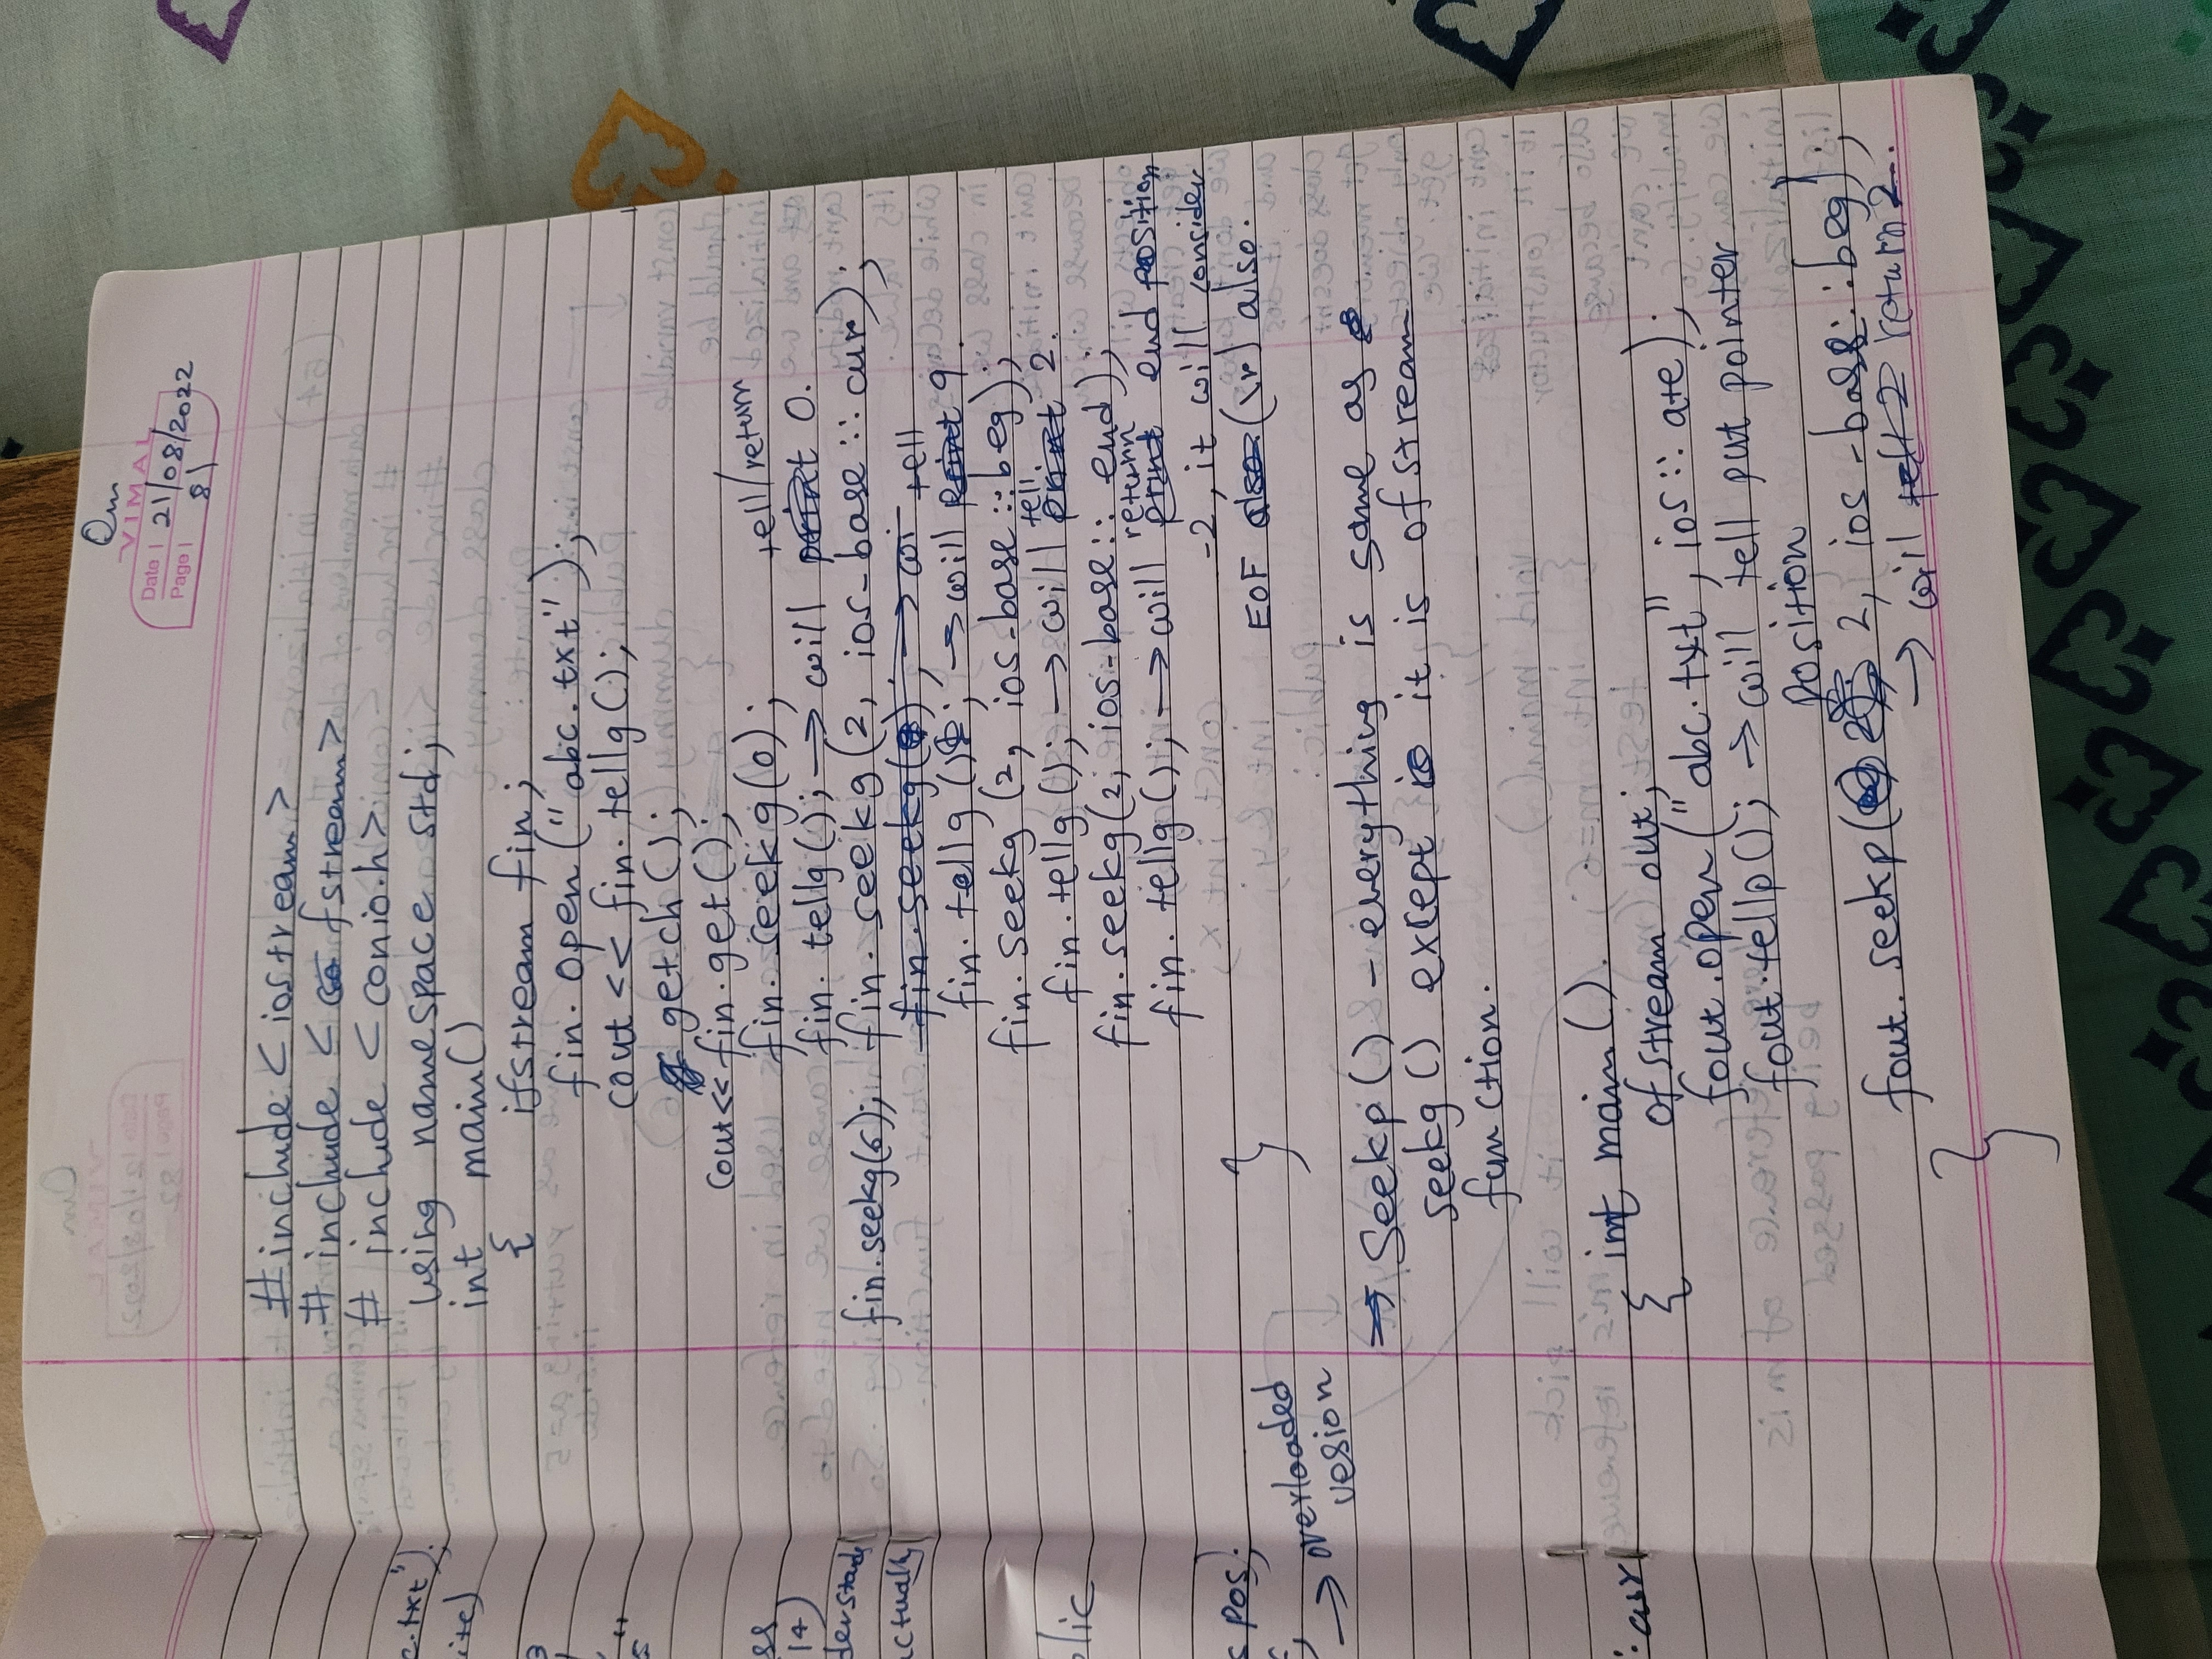 Om
VIMAL
Date | 21/08/2022
Page | 81
#include < iostream >
# include < fstream >
# include < conio.h >
using namespace std;
int main()
{ ifstream fin;
fin. open ("abc.txt");
cout << fin. tellg();
getch();
cout<< fin.get();
fin. seekg(0);
tell/return
fin. tellg(); → will print 0.
fin.seekg(6); fin. seekg (2, ios-base :: cur);
fin.seekg( ); → wi
tell
fin. tellg (); → will print 9.
fin. seekg (2, ios-base :: beg);
tell
fin. tellg (); → will print 2.
fin. seekg(2, ios-base :: end);
return
fin. tellg (); → will print end position
-2, it will consider
EOF also (\r) also.
}
⇒ Seekp () - everything is same as
seekg () except it is ofstream
function.
int main().
{ ofstream out;
fout.open("abc.txt", ios :: ate);
fout.tellp(); → will tell put pointer
position
fout. seekp( 2, ios -base : :beg);
→ will tell 2 return 2.
}
c.txt");
ite)
3
ss
14)
derstands
actually
lic
s pos;
→ overloaded
vesion
: cur